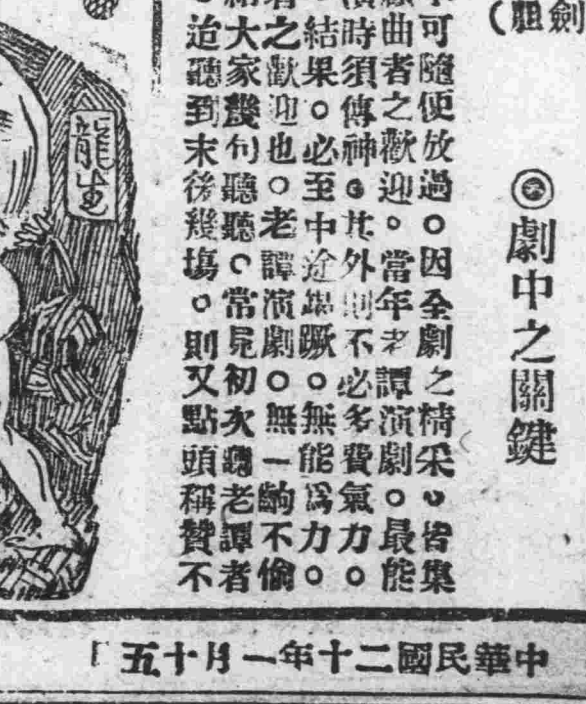 劍
胆（
◎劇中之關鍵
可隨便放過。因全劇之精采。皆集
曲者之歡迎。當年老譚演劇。最能
時須傳神。其外則不必多費氣力。
結果。必至中途竭蹶。無能爲力。
之歡迎也。老譚演劇。無一齣不偷
大家幾句聽聽。常見初次聽老譚者
。迨聽到末後幾塲。則又點頭稱贊不
龍生
中華民國二十年一月十五